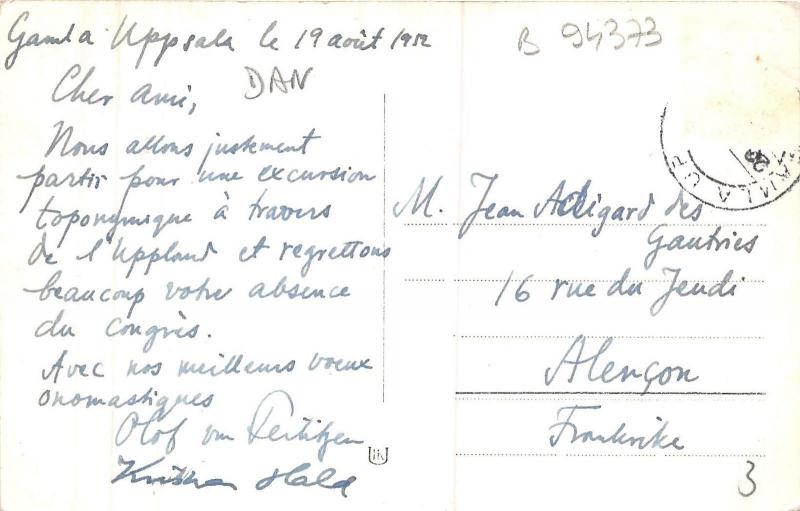 Gamla Uppsala le 19 août 1952
B 94373
DAN
Cher ami,
Nous allons justement
partir pour une excursion
toponymique à travers
de l'Uppland et regrettons
beaucoup votre absence
du congrès.
Avec nos meilleurs voeux
onomastiques
Olof von Feilitzen
Kristian Hald
M. Jean Adigard des
Gautries
16 rue du Jeudi
Alençon
Frankrike
GAMLA UP
3